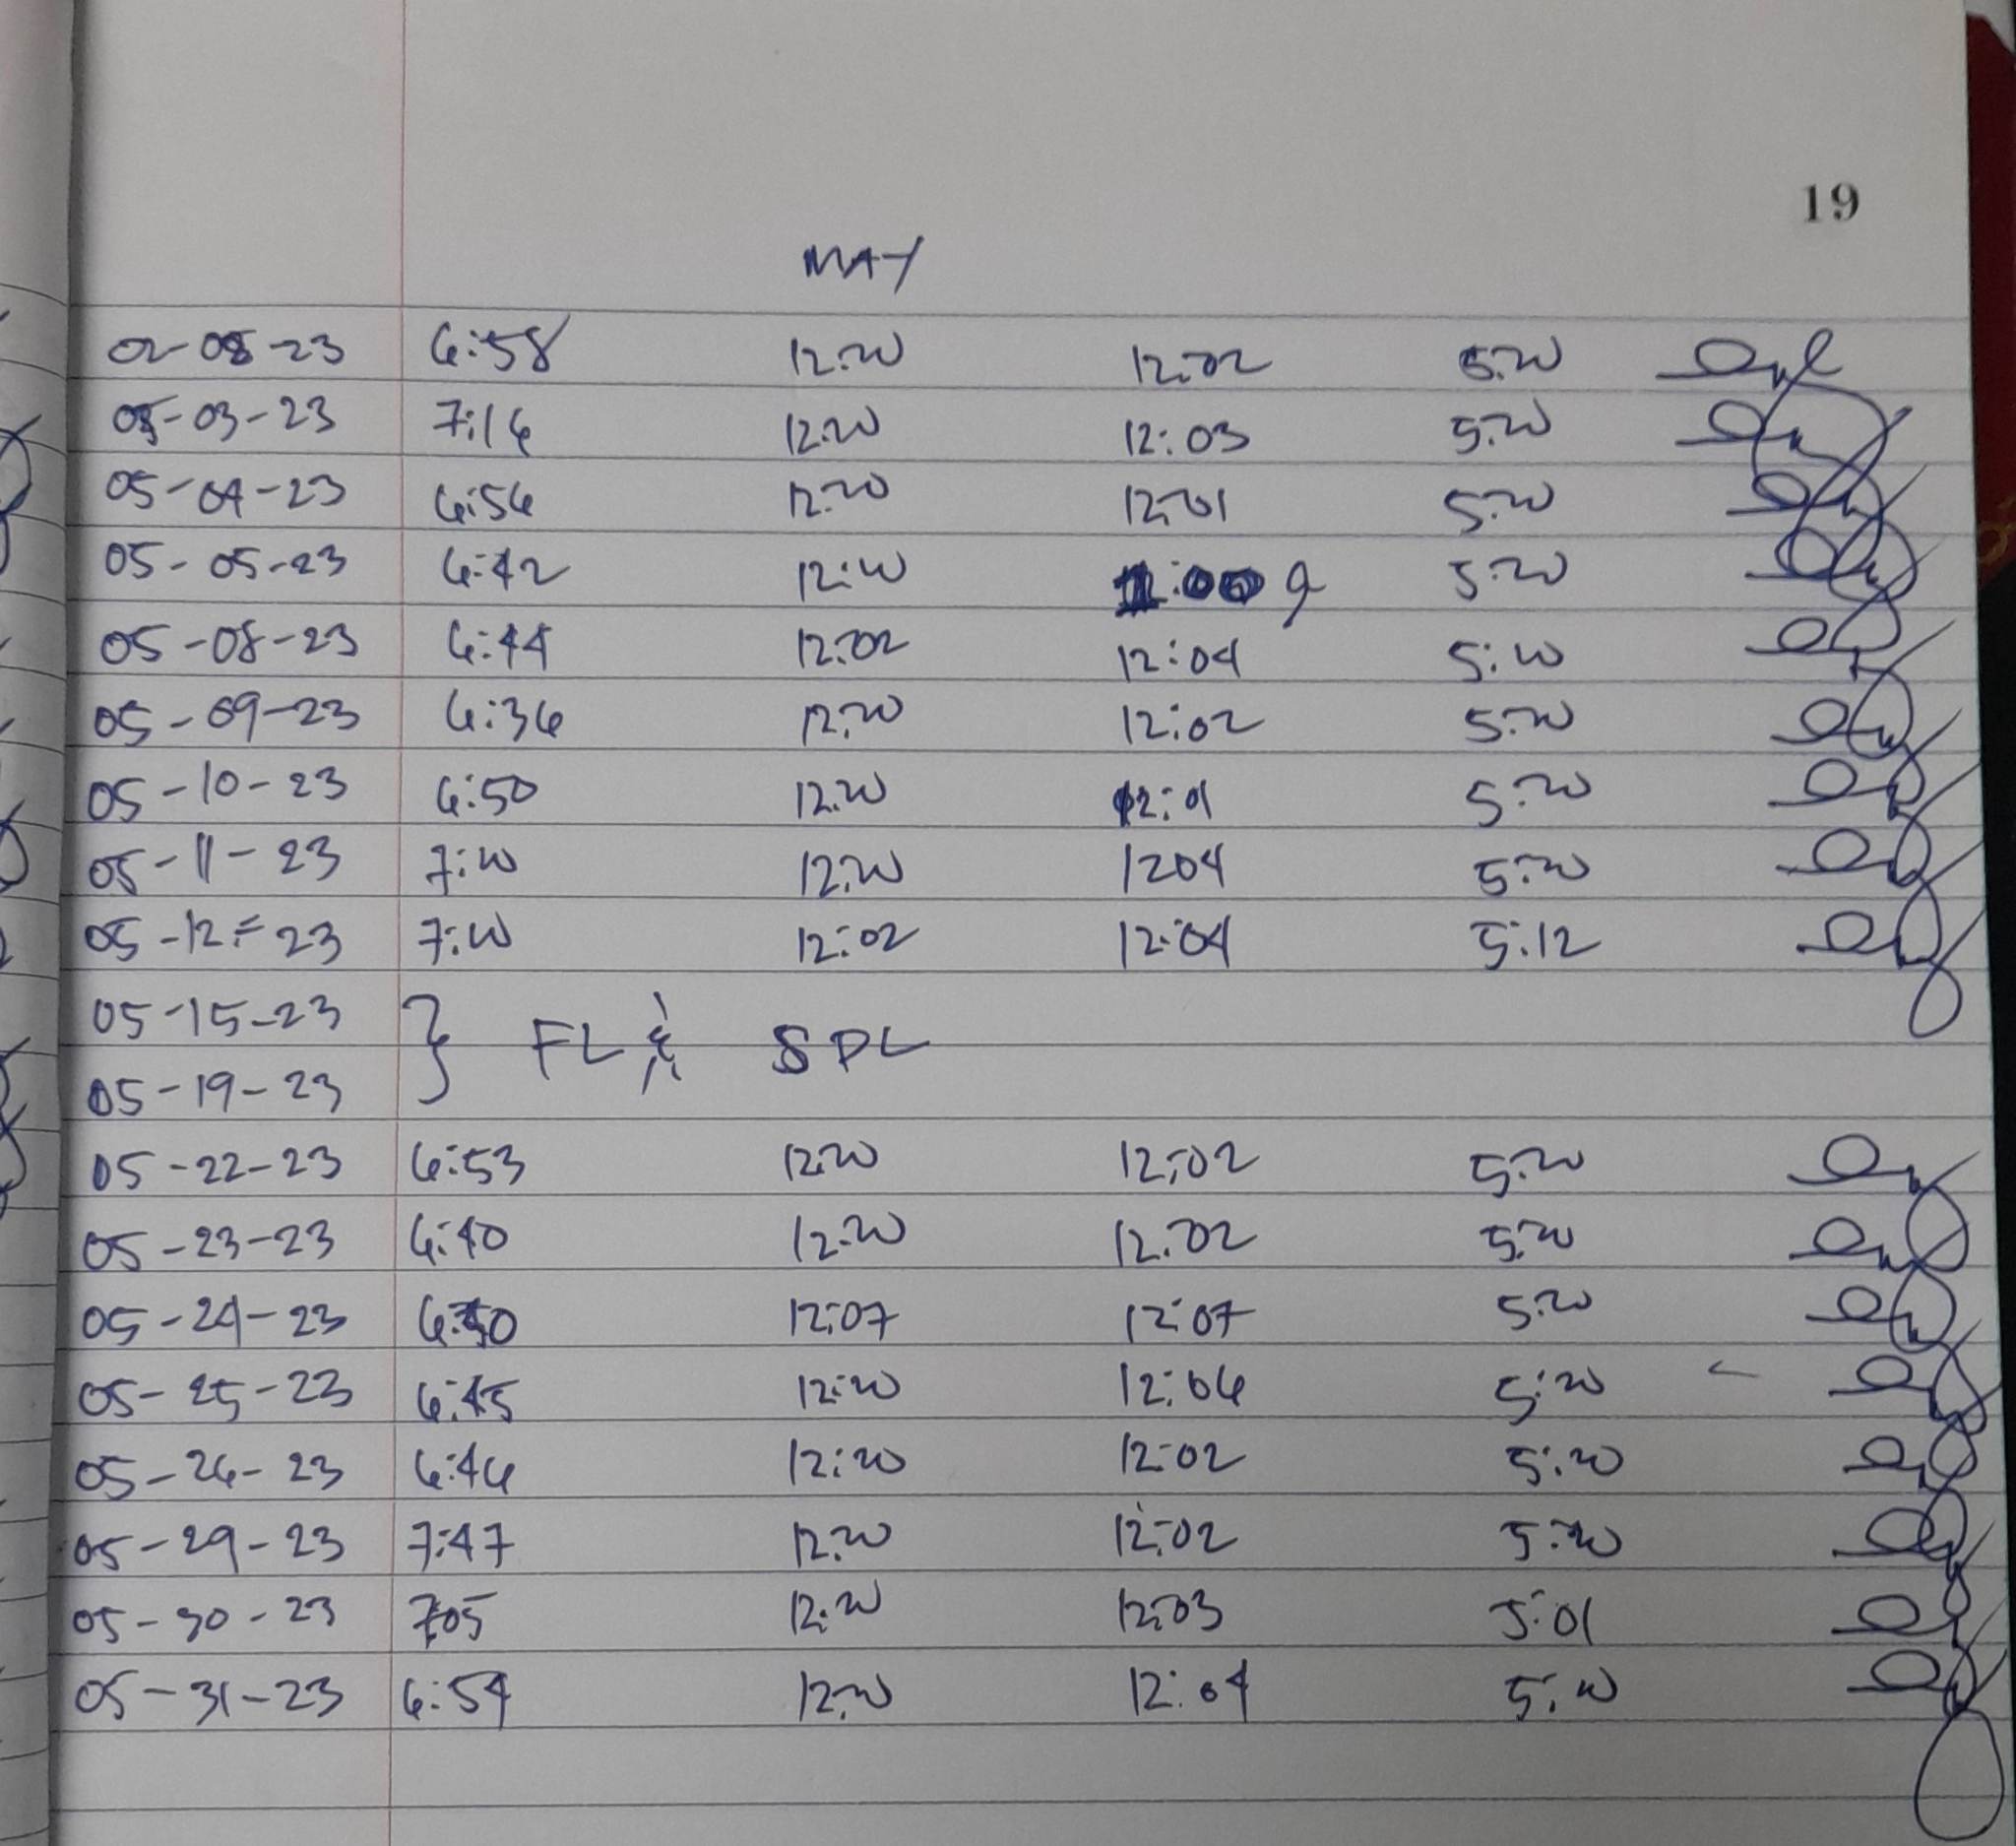 19
MAY
02-05-23 6:58 12:00 12:02 5:00
05-03-23 7:16 12:00 12:03 5:00
05-04-23 6:56 12:00 12:01 5:00
05-05-23 6:42 12:00 5:00
05-08-23 6:44 12:02 12:04 5:00
05-09-23 6:36 12:00 12:02 5:00
05-10-23 6:50 12:00 12:01 5:00
05-11-23 7:00 12:00 1204 5:00
05-12-23 7:00 12:02 12:04 5:12
05-15-23
} FL & SPL
05-19-23
05-22-23 6:53 12:00 12:02 5:00
05-23-23 6:40 12:00 12:02 5:00
05-24-23 12:07 12:07 5:00
05-25-23 6:45 12:00 12:06 5:00
05-26-23 6:46 12:00 12:02 5:00
05-29-23 7:47 12:00 12:02 5:00
05-30-23 7:05 12:00 12:03 5:01
05-31-23 6:54 12:00 12:04 5:00